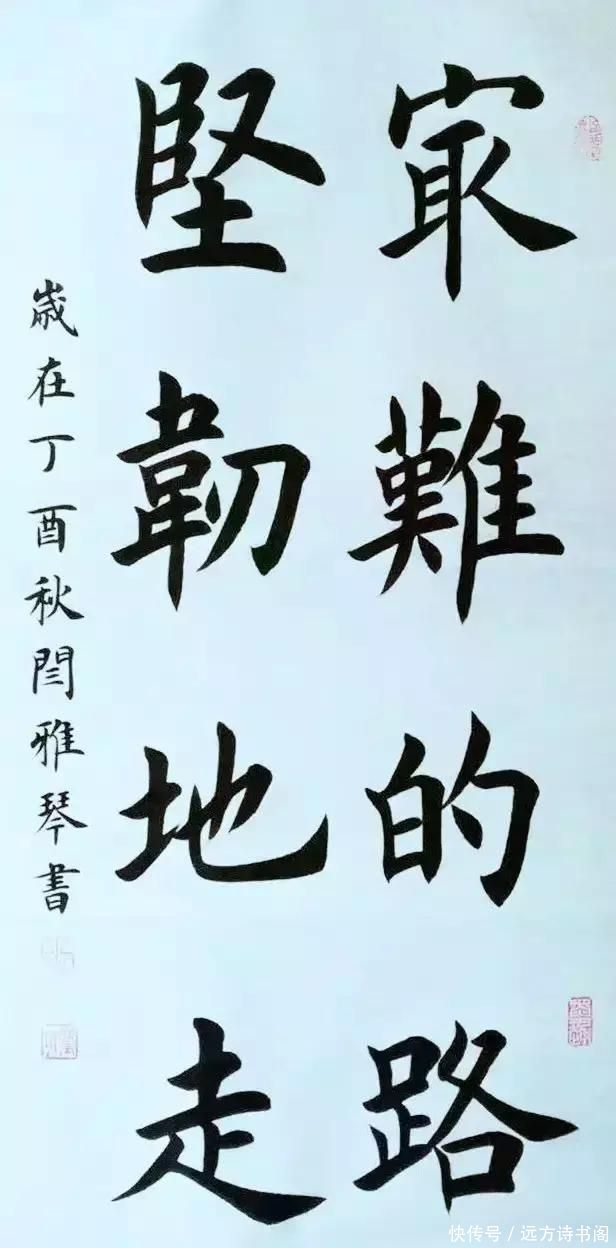 㝡難的路
堅韌地走
嵗在丁酉秋閆雅琴書
快传号/远方诗书阁